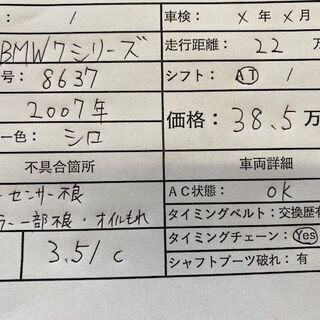 1
車検： × 年 × 月
BMW7シリーズ
走行距離： 22 万
号： 8637
シフト： AT /
2007年
価格： 38.5 万
ー色： シロ
不具合箇所
車両詳細
センサー不良
AC状態： OK
ラー一部不良・オイルもれ
タイミングベルト：交換歴有
タイミングチェーン： Yes
3.5/c
シャフトブーツ破れ： 有